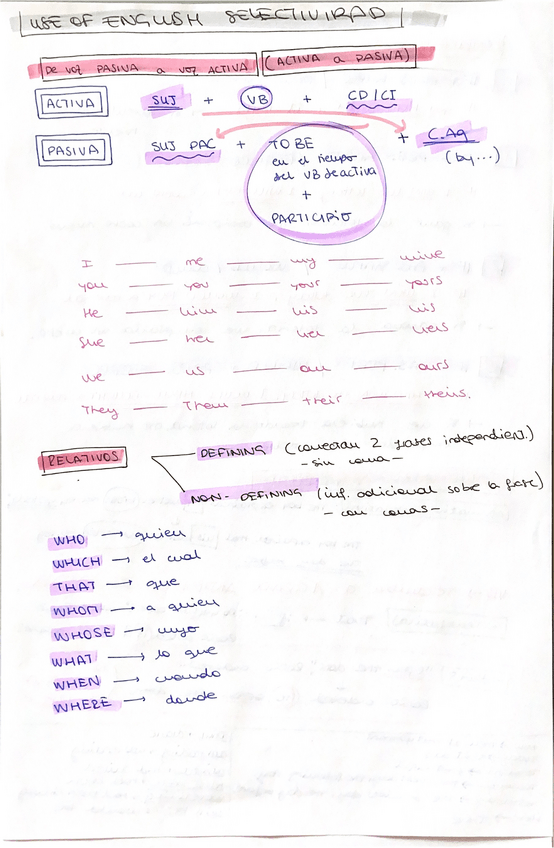 USE OF ENGLISH SELECTIVIDAD
DE VOZ PASIVA a VOZ ACTIVA (ACTIVA a PASIVA)
ACTIVA SUJ + VB + CD/CI
PASIVA SUJ PAC + TO BE + C.Ag
en el tiempo (by...)
del VB de activa
+
PARTICIPIO
I — me — my — mine
you — you — your — yours
He — him — his — his
She — her — her — hers
we — us — our — ours
They — Them — their — theirs.
RELATIVOS
DEFINING (conectan 2 frases independient.)
- sin coma -
NON-DEFINING (inf. adicional sobre la frase)
- con comas -
WHO → quien
WHICH → el cual
THAT → que
WHOM → a quien
WHOSE → cuyo
WHAT → lo que
WHEN → cuando
WHERE → donde